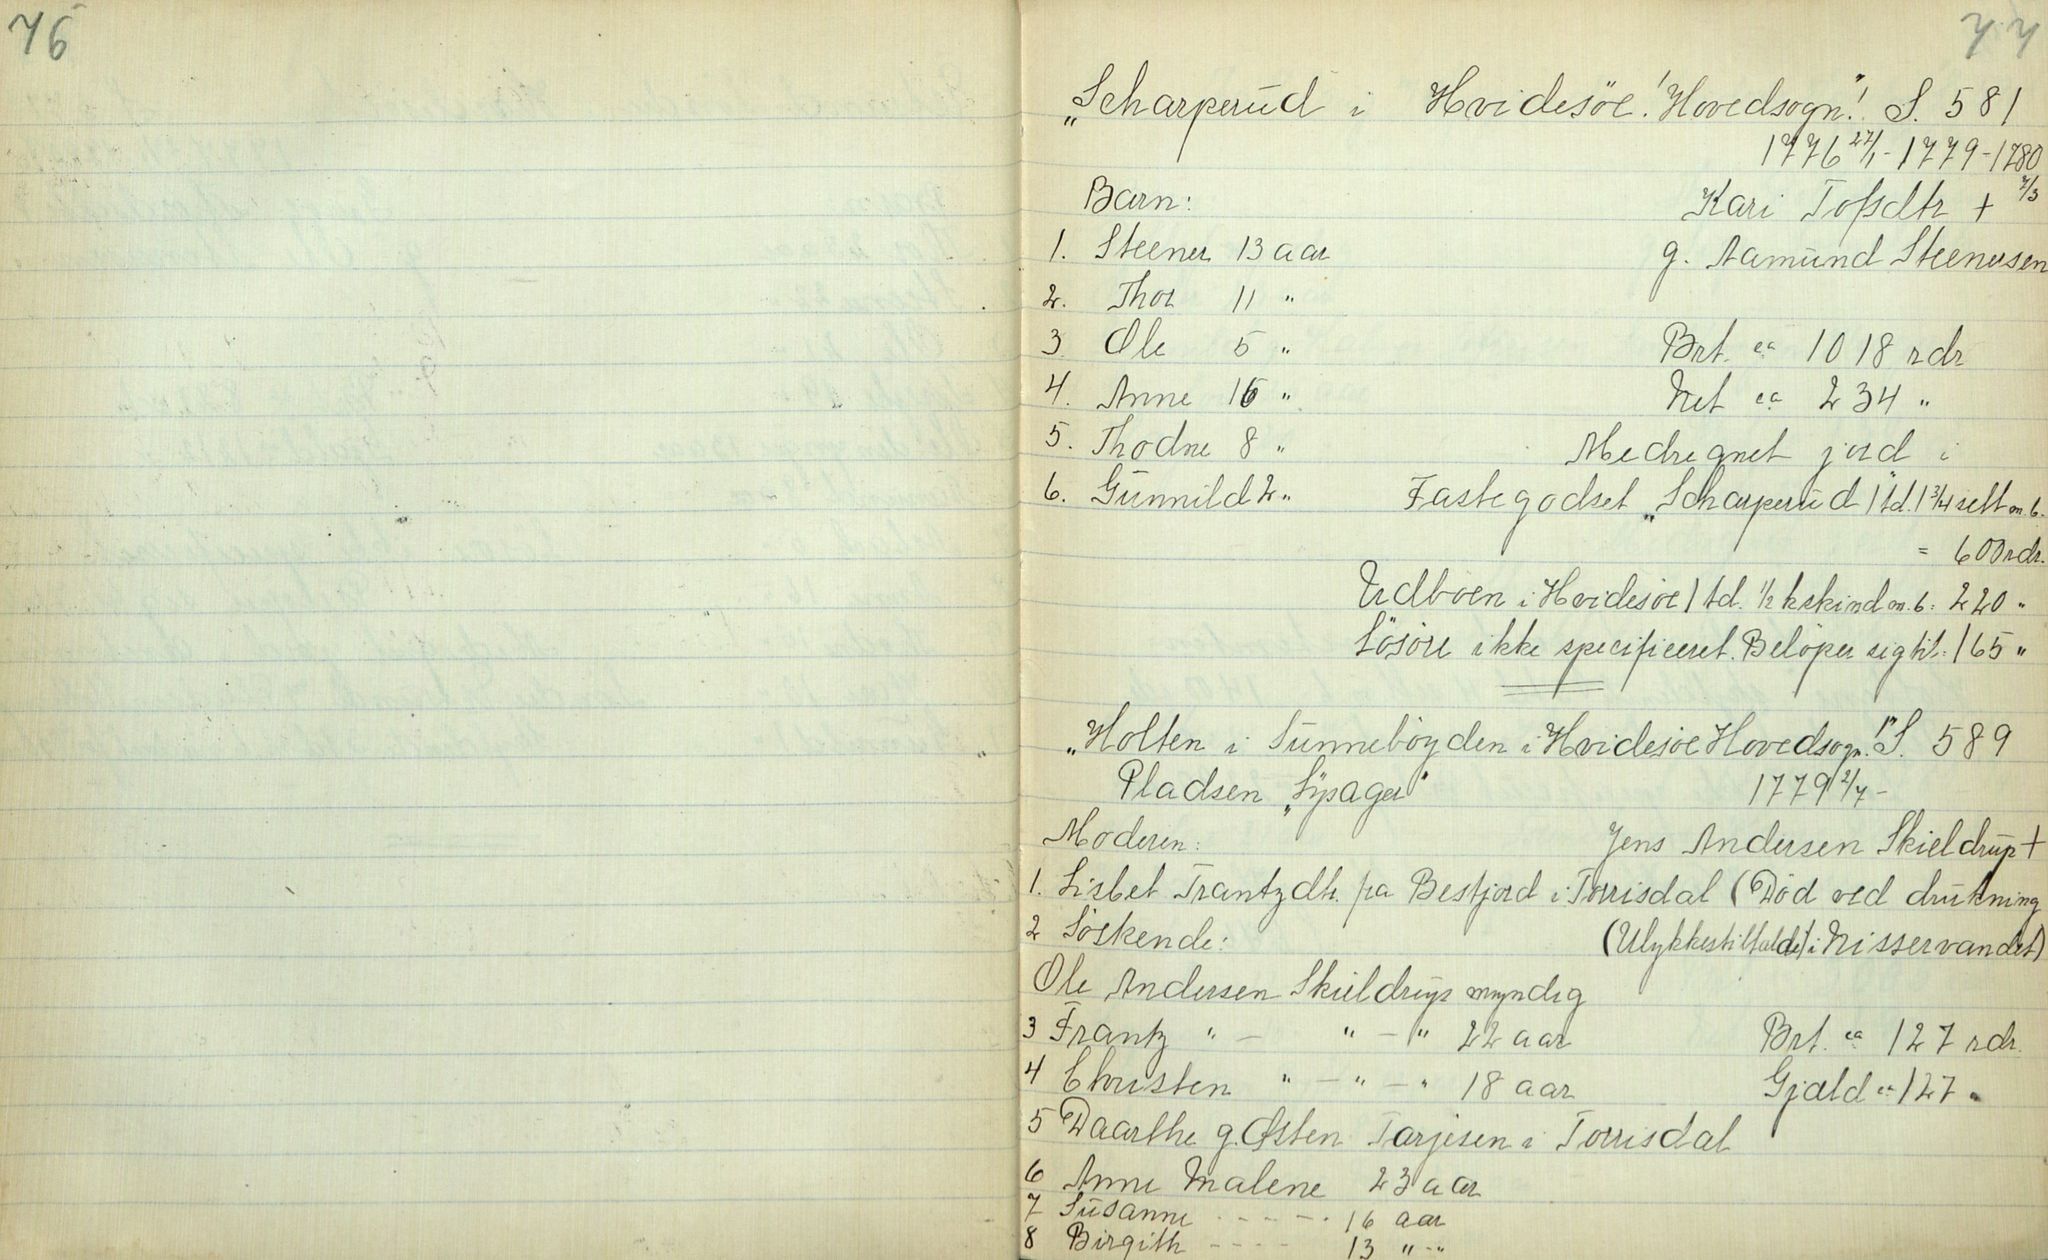 76
77
„Scharperud i Hvidesöe! Hovedsogn"! S. 581
1776 27/1 - 1779 - 1780
Barn: Kari Tofsdtr + 7/3
1. Steener 13 aar g. Aamund Steenersen
2. Thor 11 "
3 Ole 5 " Brt. ca 1018 rdr
4. Anne 16 " Net ca 234 "
5. Thodne 8 " Medregnet jord i
6. Gunnild 2 " Fastegodset „Scharperud" 1 td. 1 3/4 sett m. b.
= 600 rdr.
Udböen i Hvidesöe 1 td. 1/2 kskind m. b: 220 "
Lösöre ikke specificeret. Belöper sig til: 165 "
„Holten i Sunnebögden i Hvidesöe Hovedsogn"! S. 589
Pladsen „Lysager" 1779 2/7 -
Moderen: Jens Andersen Skieldrup +
1. Lisbet Frantzdtr. fra Bestjord i Torrisdal (Död ved drukning
2 Söskende: (Ulykkestilfælde) i Nisservandet)
Ole Andersen Skieldrup myndig
3 Frantz " - " - " 22 aar Brt. ca 127 rdr.
4 Christen " - " - " 18 aar Gjæld ca 127 "
5 Daarthe g. Østen Tarjesen i Torrisdal
6 Anne Malene 23 aar
7 Susanne - - - - - 16 aar
8 Birgith - - - - 13 " - "